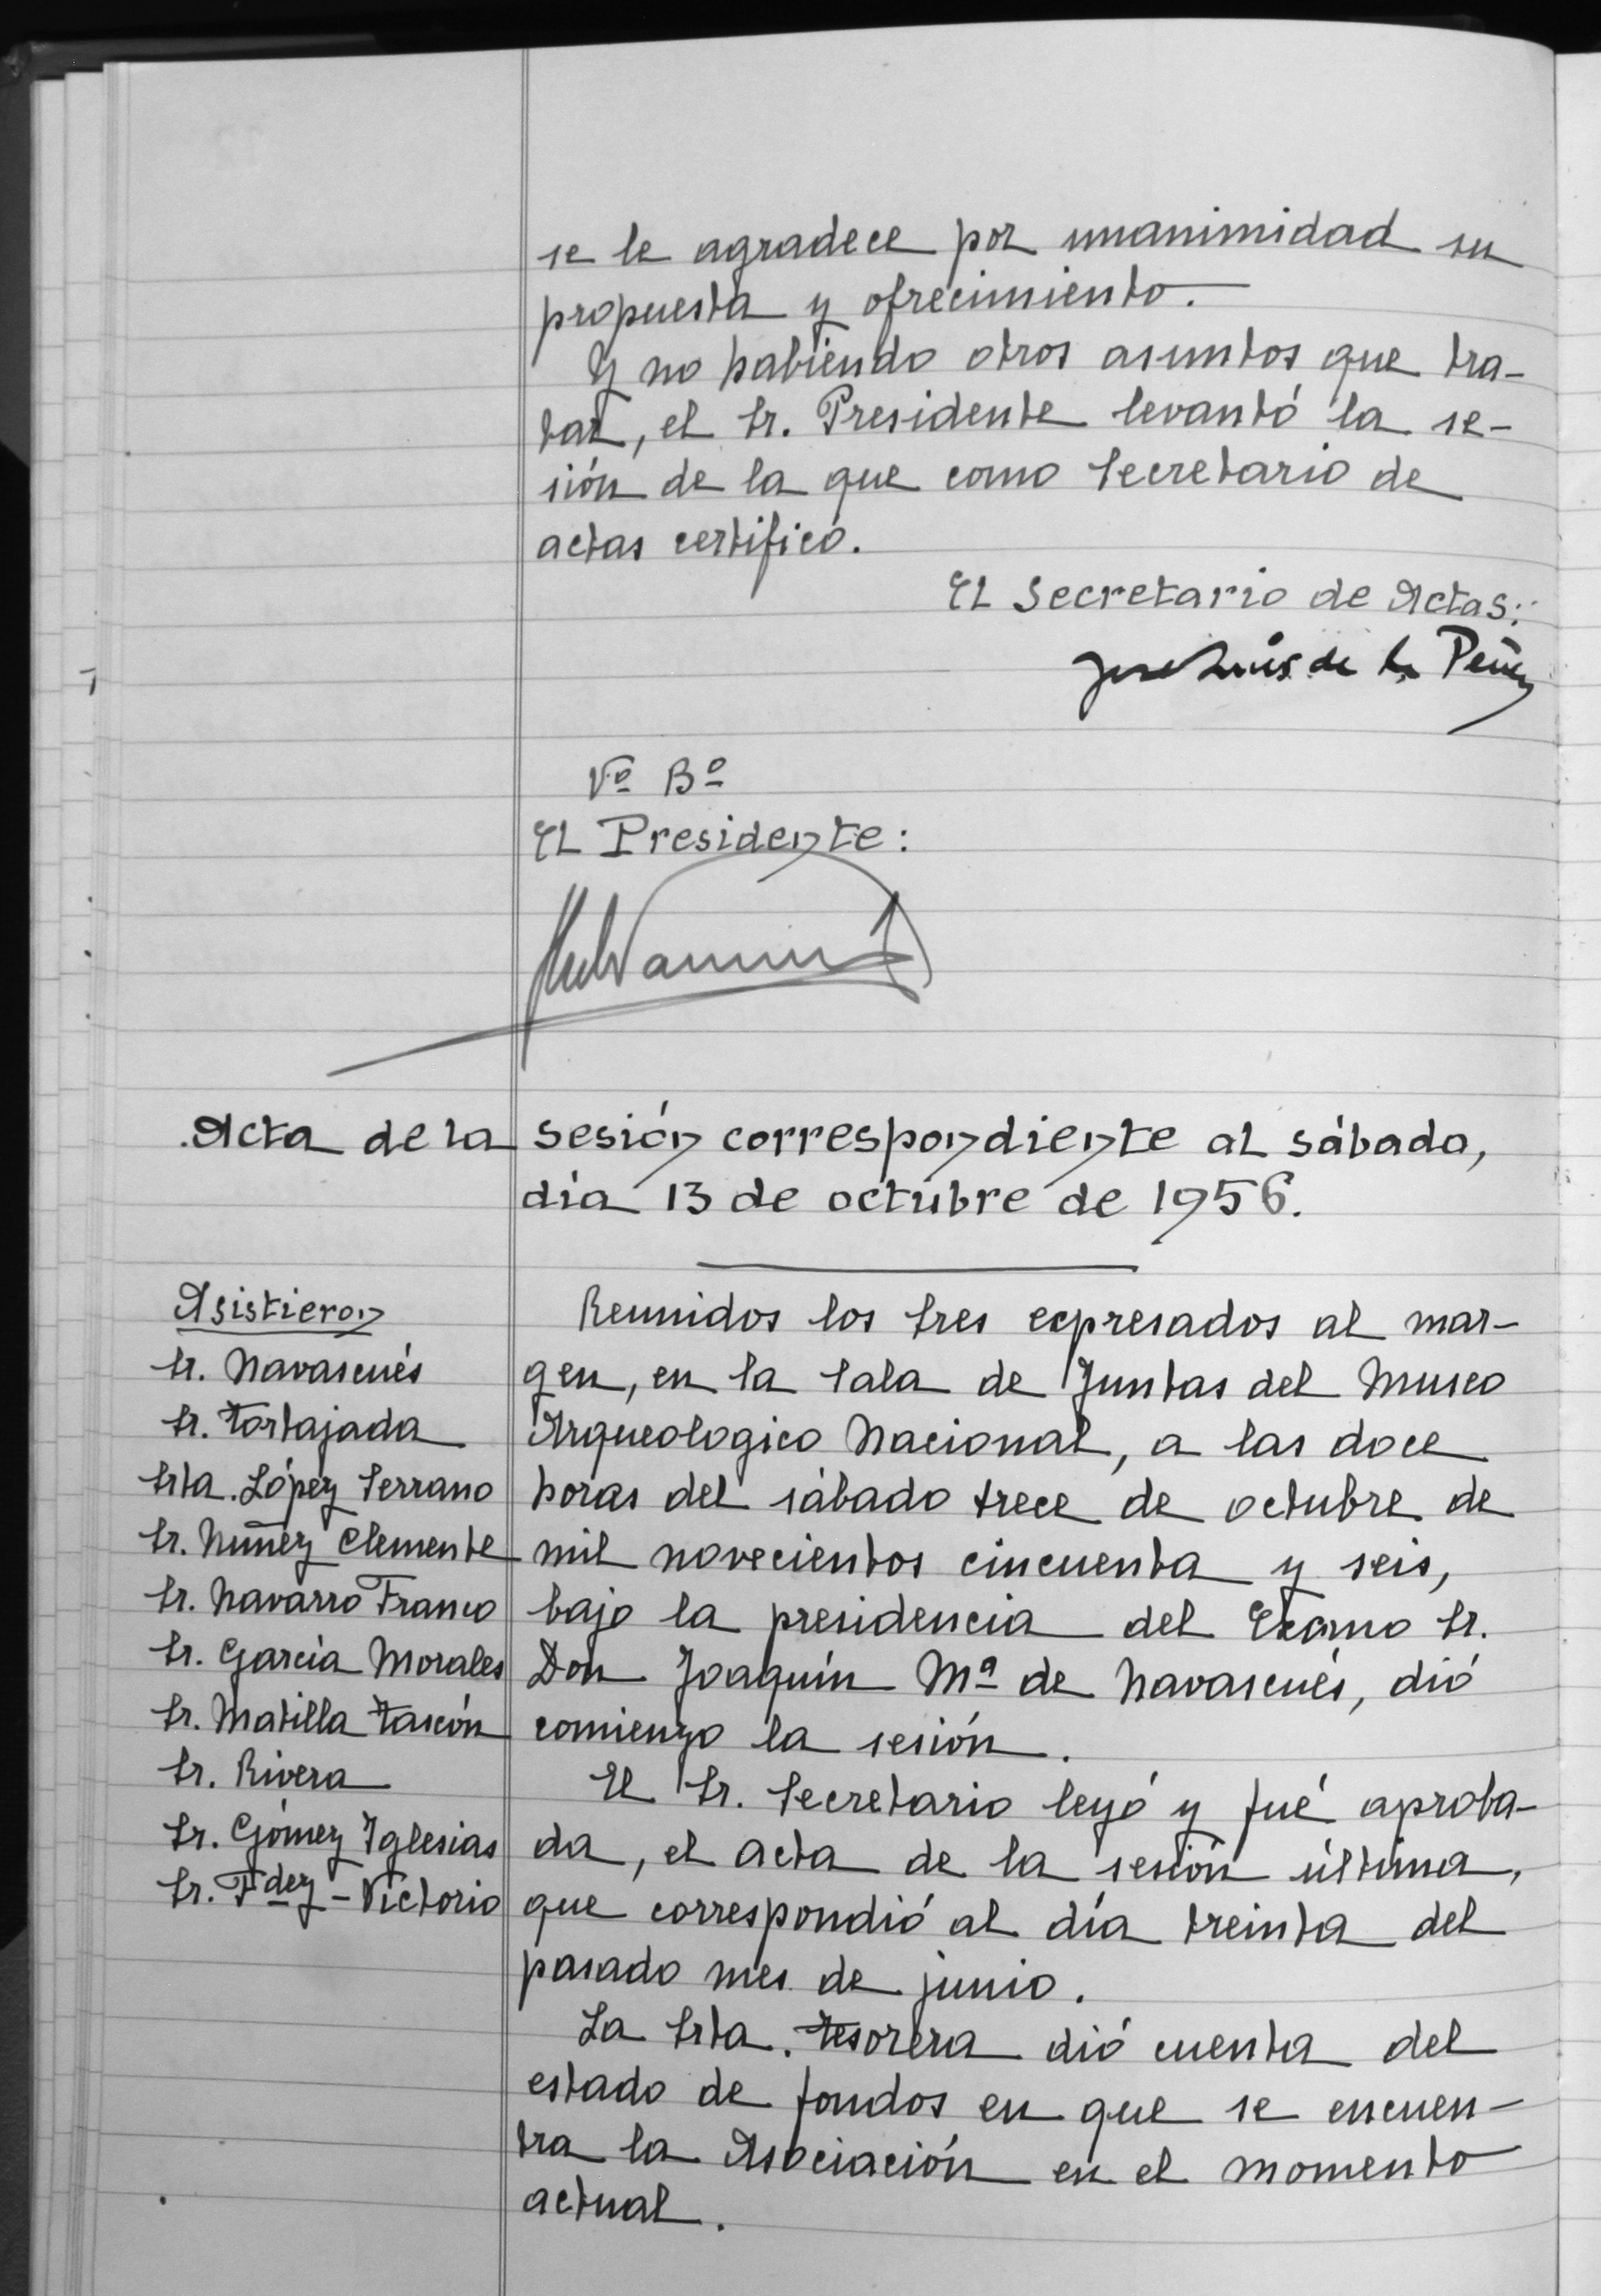 se le agradece por unanimidad su
propuesta y ofrecimiento.
Y no habiendo otros asuntos que tra-
tar, el Sr. Presidente levantó la se-
sión de la que como Secretario de
actas certificó.
El Secretario de Actas:
Jose Luis de la Peña
Vº Bº
El Presidente:
Acta de la sesión correspondiente al sábado,
día 13 de octubre de 1956.
Asistieron
Sr. Navascués
Sr. Tortajada
Srta. López Serrano
Sr. Nuñez Clemente
Sr. Navarro Franco
Sr. García Morales
Sr. Matilla Tascón
Sr. Rivera
Sr. Gómez Iglesias
Sr. Fdez-Victorio
Reunidos los Sres expresados al mar-
gen, en la Sala de Juntas del Museo
Arqueologico Nacional, a las doce
horas del sábado trece de octubre de
mil novecientos cincuenta y seis,
bajo la presidencia del Excmo Sr.
Don Joaquín Mª de Navascués, dió
comienzo la sesión.
El Sr. Secretario leyó y fué aproba-
da, el acta de la sesión última,
que correspondió al día treinta del
pasado mes de junio.
La Srta. Tesorera dió cuenta del
estado de fondos en que se encuen-
tra la Asociación en el momento
actual.